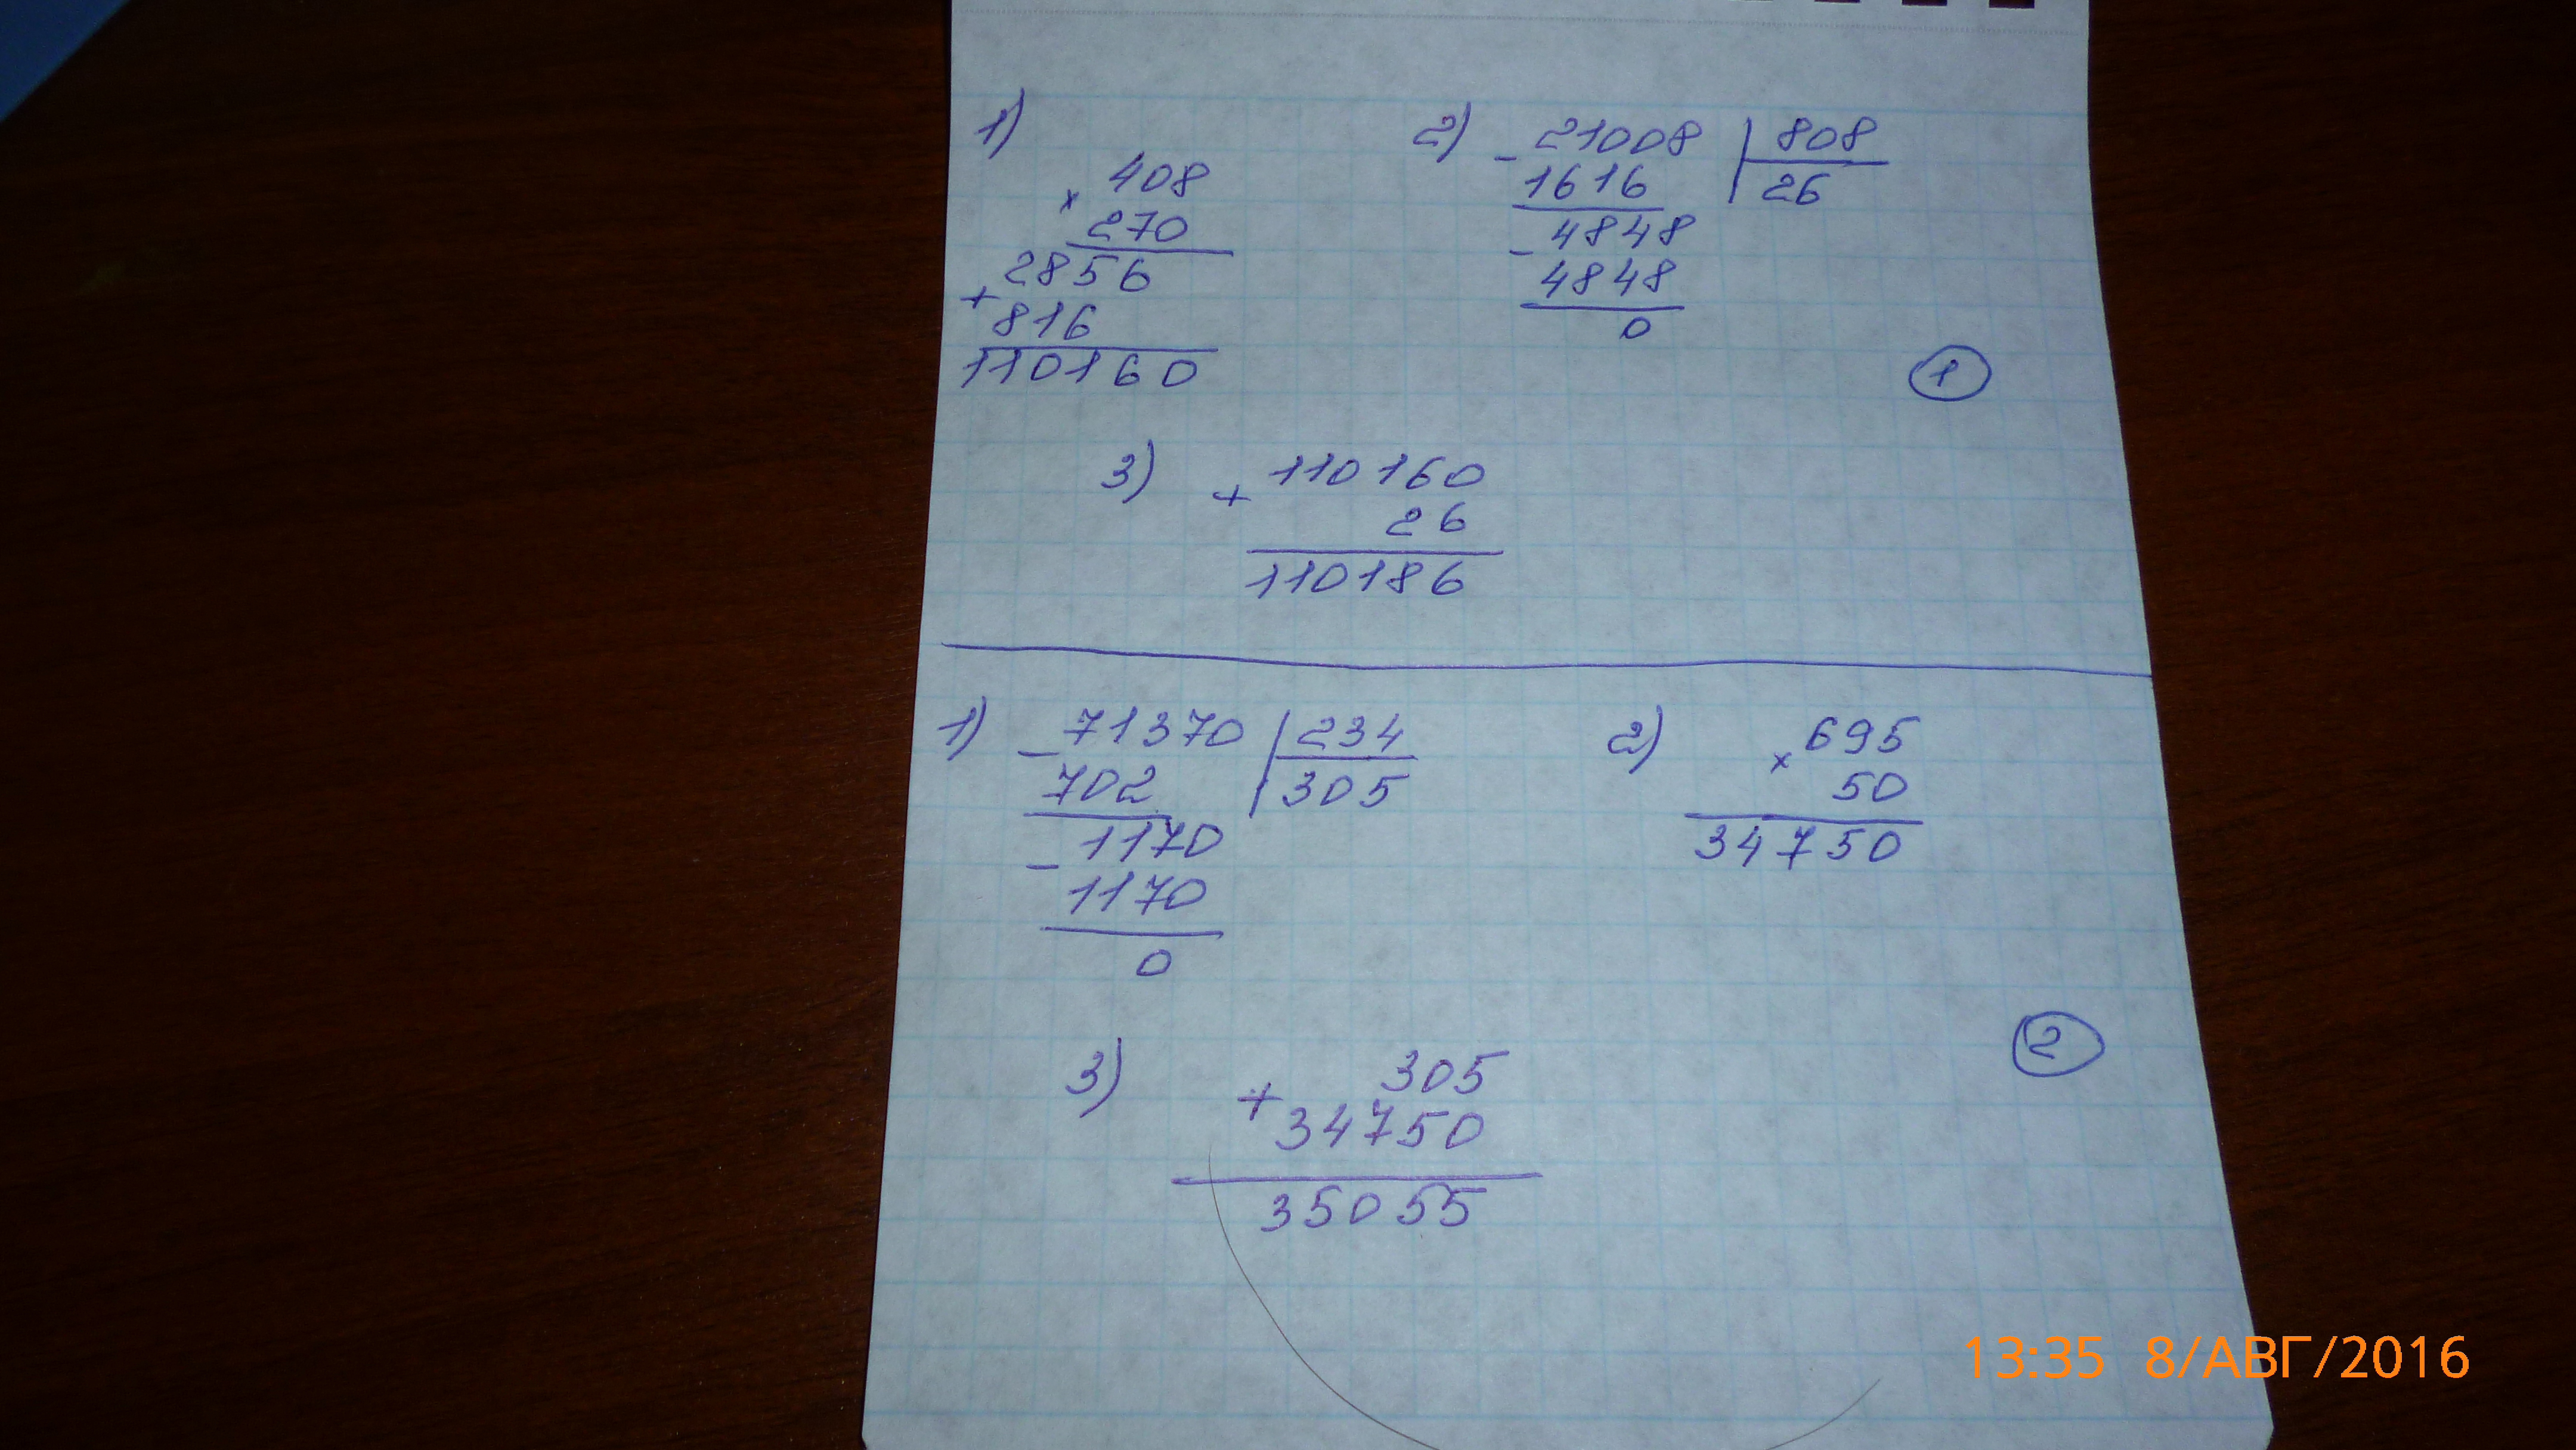 1)
× 408
270
2856
+ 816
110160
2) - 21008 | 808
1616 | 26
4848
- 4848
0
1
3) + 110160
26
110186
1) - 71370 | 234
702 | 305
1170
- 1170
0
2) × 695
50
34750
3) + 305
34750
35055
2
13:35 8/АВГ/2016